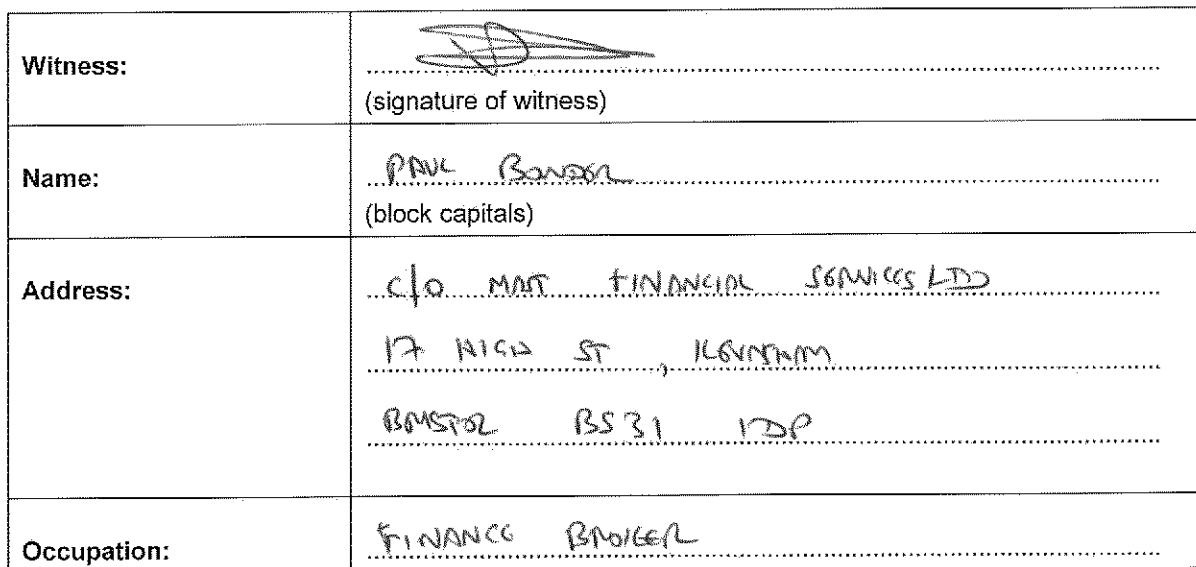 Witness:
(signature of witness)
Name:
PAUL
(block capitals)
Address:
C/O MAT FINANCIAL SERVICES LTD
17 HIGH ST, KEYNSHAM
BRISTOL BS31 1DP
Occupation:
FINANCE BROKER